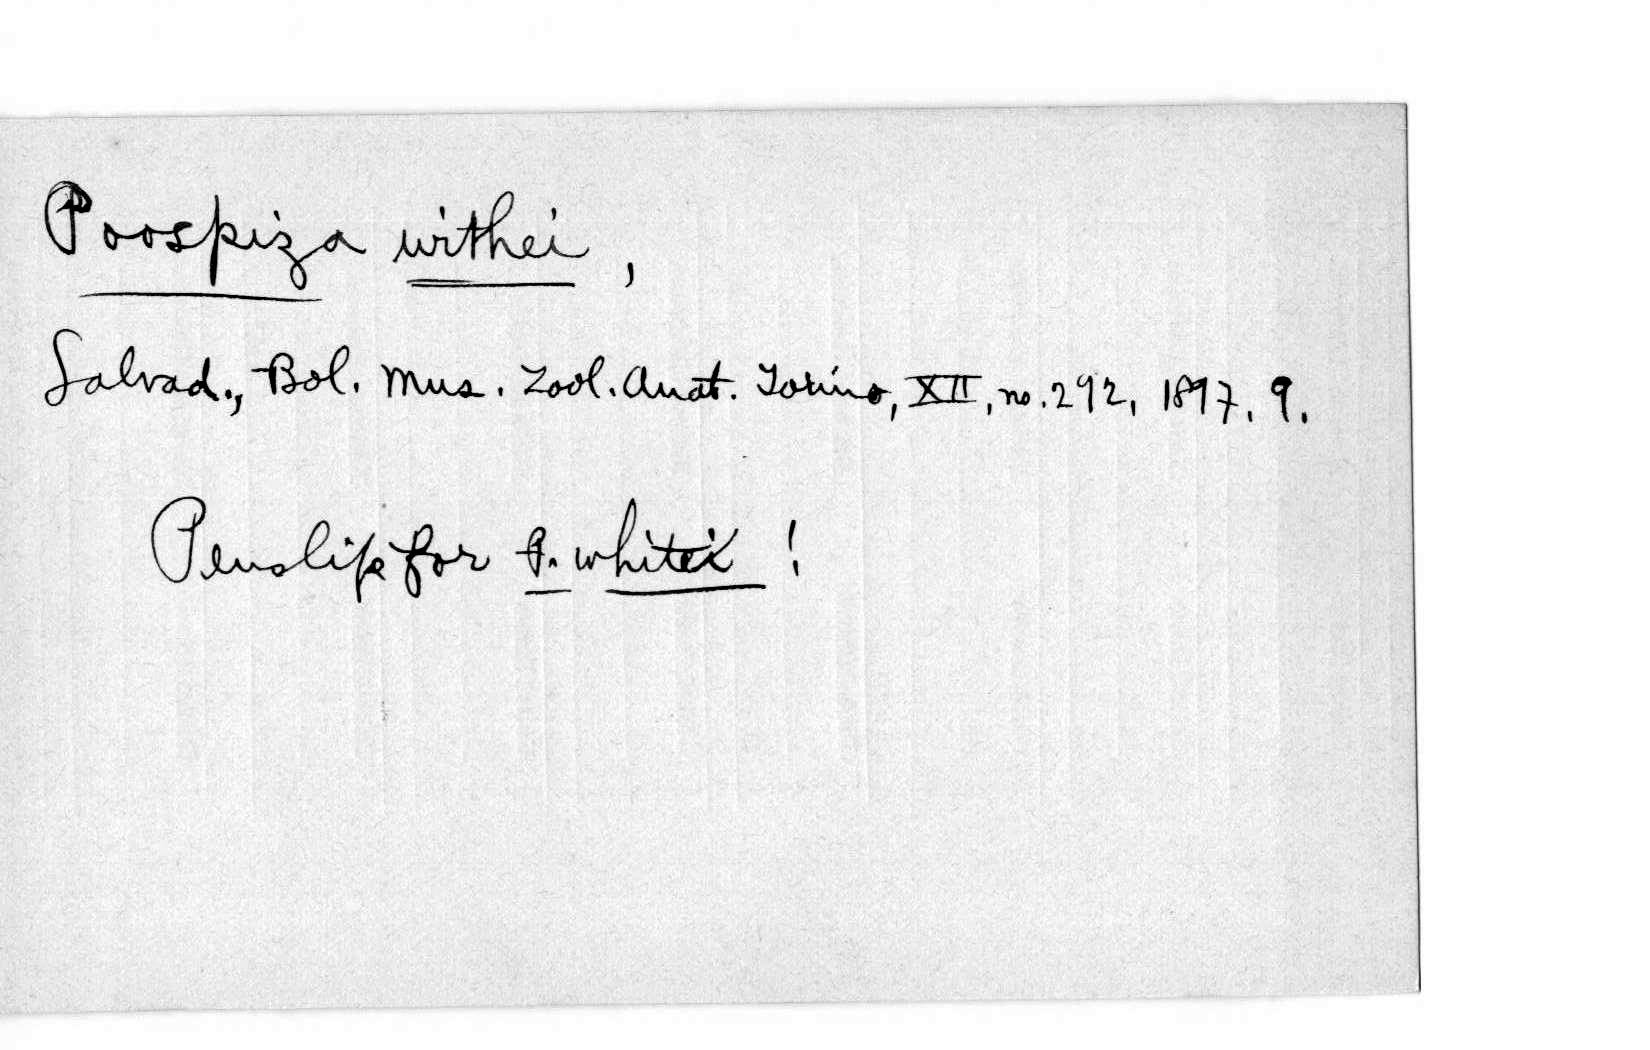 Poospiza withei,
Salvad., Bol. Mus. Zool. Anat. Torino, XII, no. 292, 1897, 9.
Penslip for P. whitei !